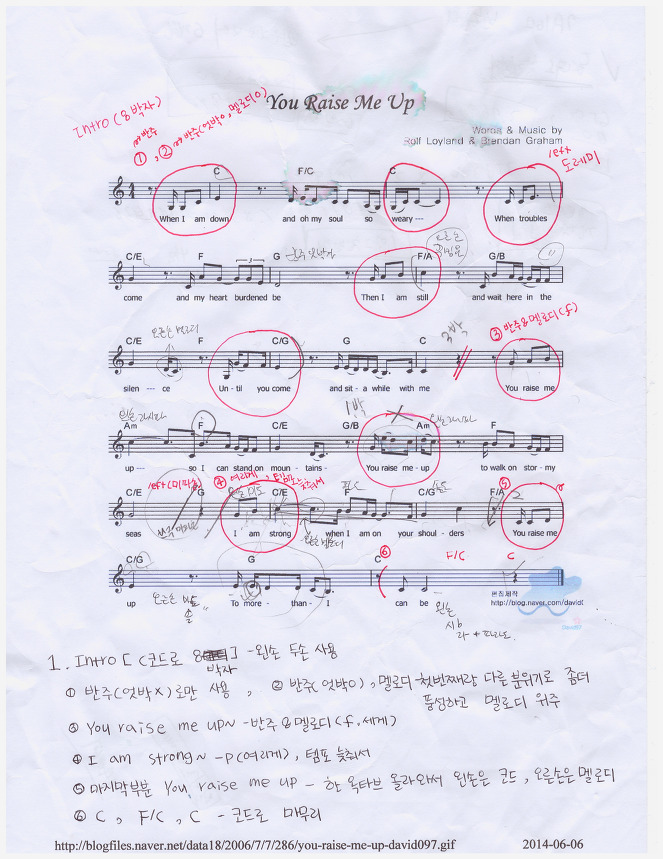 You Raise Me Up
Intro (8박자)
① 반주, ② 반주(엇박O, 멜로디O)
Words & Music by
Rolf Loyland & Brendan Graham
도레미
C F/C C
When I am down and oh my soul so weary --- When troubles
C/E F G F/A G/B
come and my heart burdened be Then I am still and wait here in the
③ 반주&멜로디(f)
3박
C/E F C/G G C
silen --- ce Un - til you come and sit - a while with me You raise me
1박
Am F C/E G/B Am F
up --- so I can stand on moun - tains - You raise me - up to walk on stor - my
④ 여리게, 템포 늦춰서 ⑤
C/E G C/E F C/G F/A
seas I am strong when I am on your shoul - ders You raise me
⑥
C/G G C F/C C
up To more - than - I can be
편집제작
http://blog.naver.com/david(
1. Intro [ (코드로 8박자] - 왼손 두손 사용
① 반주(엇박X)로만 사용, ② 반주(엇박O), 멜로디-첫번째랑 다른 분위기로 좀더
풍성하고 멜로디 위주
③ You raise me up~ - 반주&멜로디(f, 세게)
④ I am strong~ - P(여리게), 템포 늦춰서
⑤ 마지막부분 You raise me up - 한 옥타브 올라와서 왼손은 코드, 오른손은 멜로디
⑥ C, F/C, C - 코드로 마무리
http://blogfiles.naver.net/data18/2006/7/7/286/you-raise-me-up-david097.gif 2014-06-06